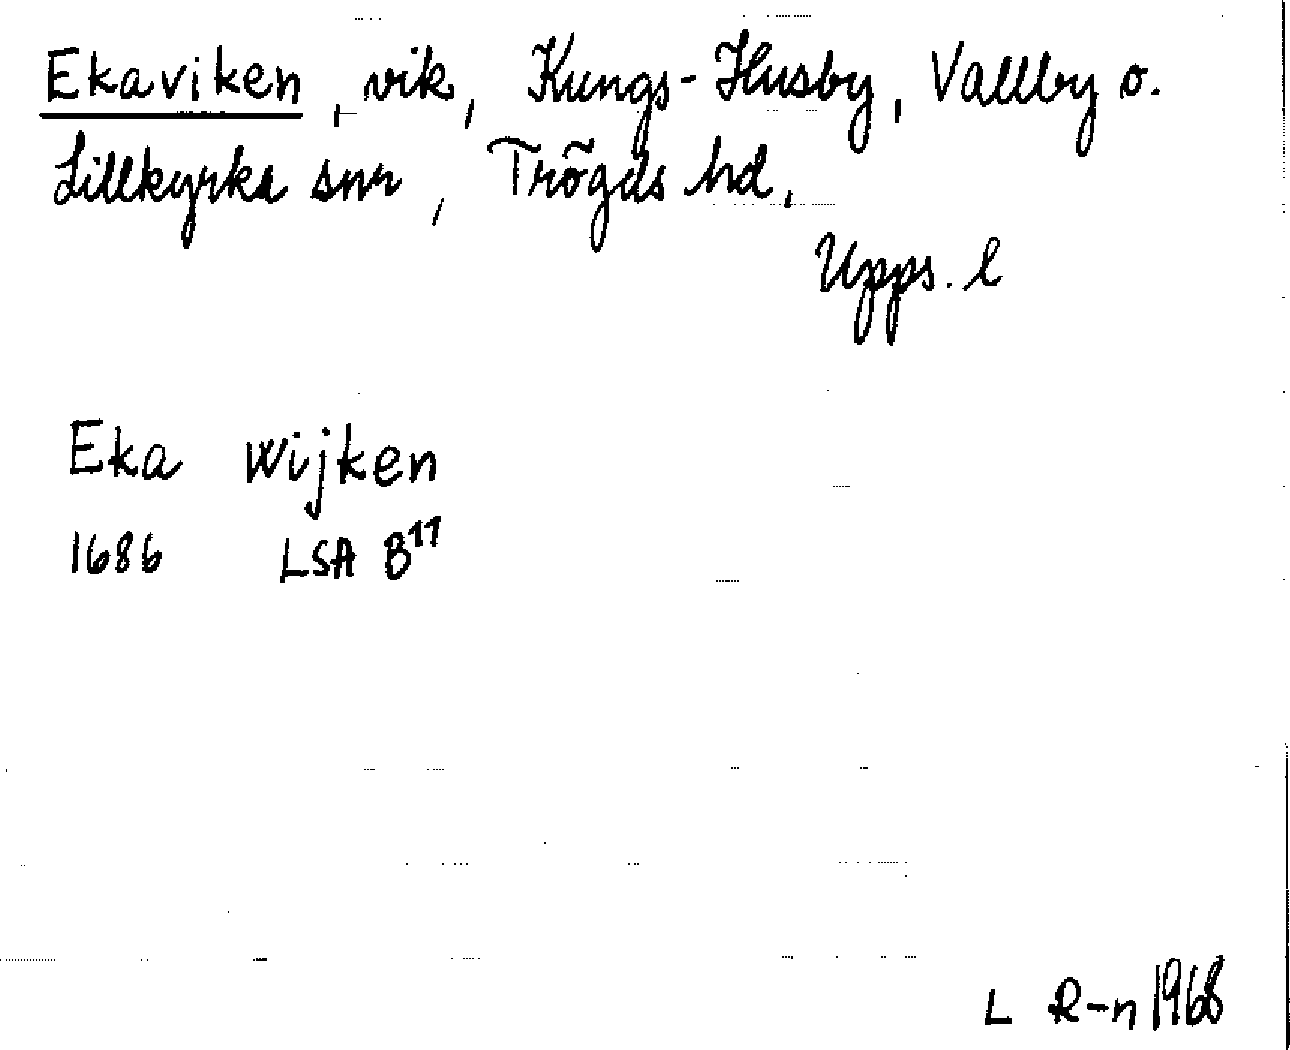 Ekaviken, vik, Kungs-Husby, Vallby o.
Lillkyrka snr, Trögds hd,
Upps. l
Eka Wijken
1686 LSA B11
L R-n 1968